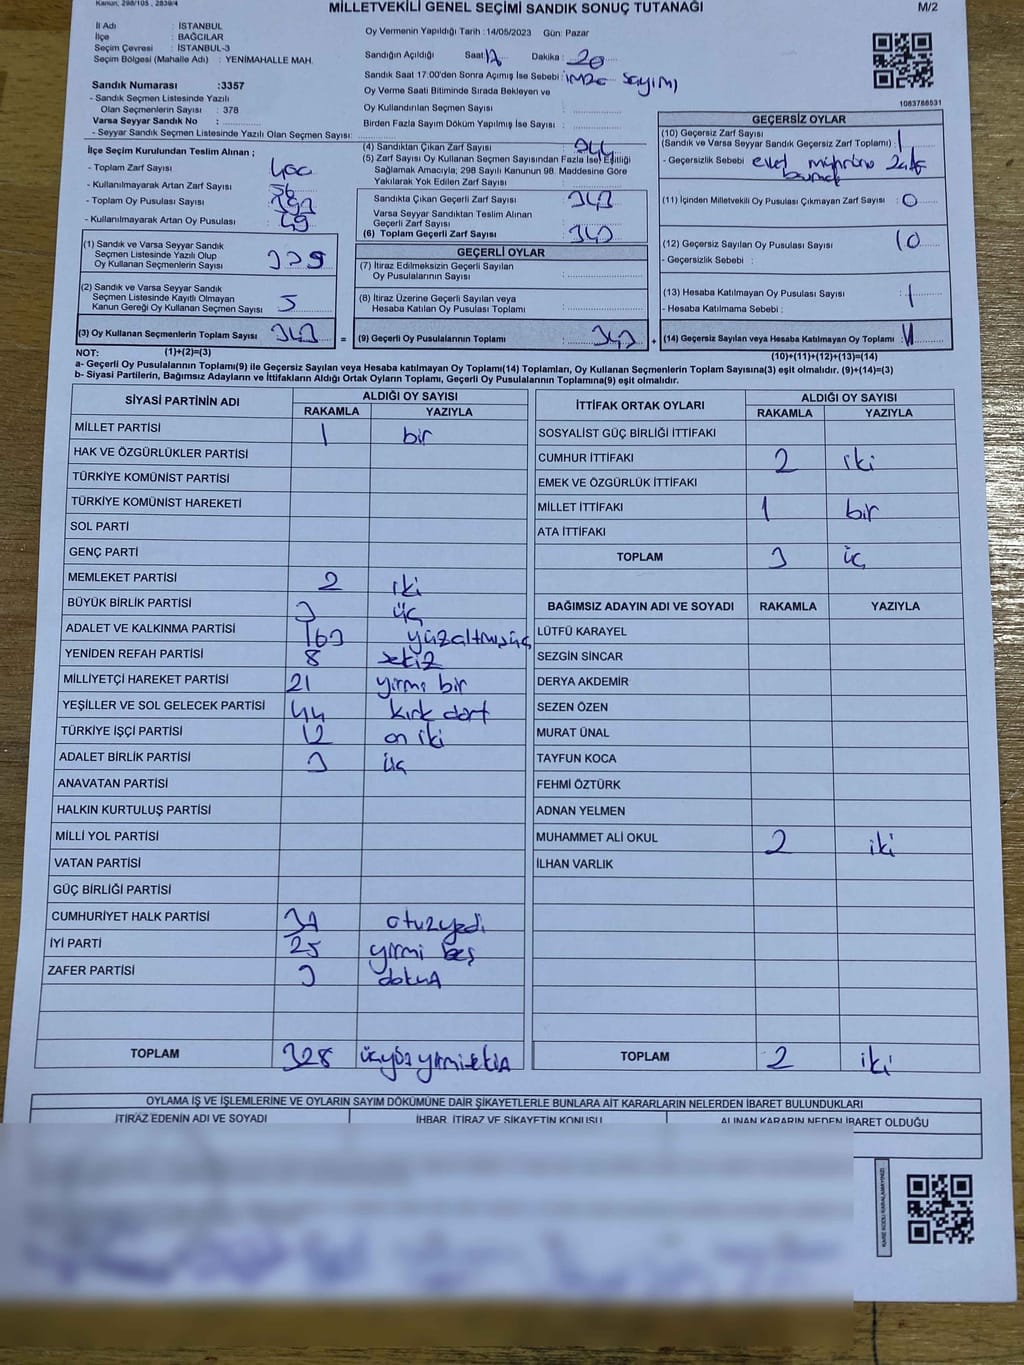 Kanun; 298/105 , 2839/4
MİLLETVEKİLİ GENEL SEÇİMİ SANDIK SONUÇ TUTANAĞI
M/2
İl Adı : İSTANBUL
İlçe : BAĞCILAR
Seçim Çevresi : İSTANBUL-3
Seçim Bölgesi (Mahalle Adı) : YENİMAHALLE MAH.
Sandık Numarası :3357
- Sandık Seçmen Listesinde Yazılı
Olan Seçmenlerin Sayısı : 378
Varsa Seyyar Sandık No :
- Seyyar Sandık Seçmen Listesinde Yazılı Olan Seçmen Sayısı:
Oy Vermenin Yapıldığı Tarih :14/05/2023 Gün: Pazar
Sandığın Açıldığı Saat: 17 Dakika : 20
Sandık Saat 17:00'den Sonra Açılmış İse Sebebi : imza sayımı
Oy Verme Saati Bitiminde Sırada Bekleyen ve
Oy Kullandırılan Seçmen Sayısı :
Birden Fazla Sayım Döküm Yapılmış İse Sayısı :
1083788531
İlçe Seçim Kurulundan Teslim Alınan ;
- Toplam Zarf Sayısı : 400
- Kullanılmayarak Artan Zarf Sayısı : 56
- Toplam Oy Pusulası Sayısı :
- Kullanılmayarak Artan Oy Pusulası : 49
(1) Sandık ve Varsa Seyyar Sandık
Seçmen Listesinde Yazılı Olup
Oy Kullanan Seçmenlerin Sayısı : 339
(2) Sandık ve Varsa Seyyar Sandık
Seçmen Listesinde Kayıtlı Olmayan
Kanun Gereği Oy Kullanan Seçmen Sayısı : 5
(3) Oy Kullanan Seçmenlerin Toplam Sayısı : 343
(4) Sandıktan Çıkan Zarf Sayısı : 344
(5) Zarf Sayısı Oy Kullanan Seçmen Sayısından Fazla İse( Eşitliği
Sağlamak Amacıyla; 298 Sayılı Kanunun 98. Maddesine Göre
Yakılarak Yok Edilen Zarf Sayısı) :
Sandıkta Çıkan Geçerli Zarf Sayısı : 343
Varsa Seyyar Sandıktan Teslim Alınan
Geçerli Zarf Sayısı :
(6) Toplam Geçerli Zarf Sayısı : 343
GEÇERLİ OYLAR
(7) İtiraz Edilmeksizin Geçerli Sayılan
Oy Pusulalarının Sayısı :
(8) İtiraz Üzerine Geçerli Sayılan veya
Hesaba Katılan Oy Pusulaları Toplamı :
= (9) Geçerli Oy Pusulalarının Toplamı : 343 +
GEÇERSİZ OYLAR
(10) Geçersiz Zarf Sayısı
(Sandık ve Varsa Seyyar Sandık Geçersiz Zarf Toplamı) : 1
- Geçersizlik Sebebi : evet mührünü zarfa
(11) İçinden Milletvekili Oy Pusulası Çıkmayan Zarf Sayısı : 0
(12) Geçersiz Sayılan Oy Pusulası Sayısı : 10
- Geçersizlik Sebebi :
(13) Hesaba Katılmayan Oy Pusulası Sayısı : 1
- Hesaba Katılmama Sebebi :
(14) Geçersiz Sayılan veya Hesaba Katılmayan Oy Toplamı :
NOT: (1)+(2)=(3) (10)+(11)+(12)+(13)=(14)
a- Geçerli Oy Pusulasının Toplamı(9) ile Geçersiz Sayılan veya Hesaba katılmayan Oy Toplamı(14) Toplamları, Oy Kullanan Seçmenlerin Toplam Sayısına(3) eşit olmalıdır. (9)+(14)=(3)
b- Siyasi Partilerin, Bağımsız Adayların ve İttifakların Aldığı Ortak Oyların Toplamı, Geçerli Oy Pusulasının Toplamına(9) eşit olmalıdır.
SİYASİ PARTİNİN ADI ALDIĞI OY SAYISI
RAKAMLA YAZIYLA
MİLLET PARTİSİ 1 bir
HAK VE ÖZGÜRLÜKLER PARTİSİ
TÜRKİYE KOMÜNİST PARTİSİ
TÜRKİYE KOMÜNİST HAREKETİ
SOL PARTİ
GENÇ PARTİ
MEMLEKET PARTİSİ 2 iki
BÜYÜK BİRLİK PARTİSİ 3 üç
ADALET VE KALKINMA PARTİSİ 163 yüzaltmışüç
YENİDEN REFAH PARTİSİ 8 sekiz
MİLLİYETÇİ HAREKET PARTİSİ 21 yirmi bir
YEŞİLLER VE SOL GELECEK PARTİSİ 44 kırk dört
TÜRKİYE İŞÇİ PARTİSİ 12 on iki
ADALET BİRLİK PARTİSİ 3 üç
ANAVATAN PARTİSİ
HALKIN KURTULUŞ PARTİSİ
MİLLİ YOL PARTİSİ
VATAN PARTİSİ
GÜÇ BİRLİĞİ PARTİSİ
CUMHURİYET HALK PARTİSİ 37 otuzyedi
İYİ PARTİ 25 yirmi beş
ZAFER PARTİSİ 9 dokuz
TOPLAM 328 üçyüzyirmisekiz
İTTİFAK ORTAK OYLARI ALDIĞI OY SAYISI
RAKAMLA YAZIYLA
SOSYALİST GÜÇ BİRLİĞİ İTTİFAKI
CUMHUR İTTİFAKI 2 iki
EMEK VE ÖZGÜRLÜK İTTİFAKI
MİLLET İTTİFAKI 1 bir
ATA İTTİFAKI
TOPLAM 3 üç
BAĞIMSIZ ADAYIN ADI VE SOYADI RAKAMLA YAZIYLA
LÜTFÜ KARAYEL
SEZGİN SİNCAR
DERYA AKDEMİR
SEZEN ÖZEN
MURAT ÜNAL
TAYFUN KOCA
FEHMİ ÖZTÜRK
ADNAN YELMEN
MUHAMMET ALİ OKUL 2 iki
İLHAN VARLIK
TOPLAM 2 iki
OYLAMA İŞ VE İŞLEMLERİNE VE OYLARIN SAYIM DÖKÜMÜNE DAİR ŞİKAYETLERLE BUNLARA AİT KARARLARIN NELERDEN İBARET BULUNDUKLARI
İTİRAZ EDENİN ADI VE SOYADI İHBAR, İTİRAZ VE ŞİKAYETİN KONUSU ALINAN KARARIN NEDEN İBARET OLDUĞU
KARE KODU KARALAMAYINIZ!